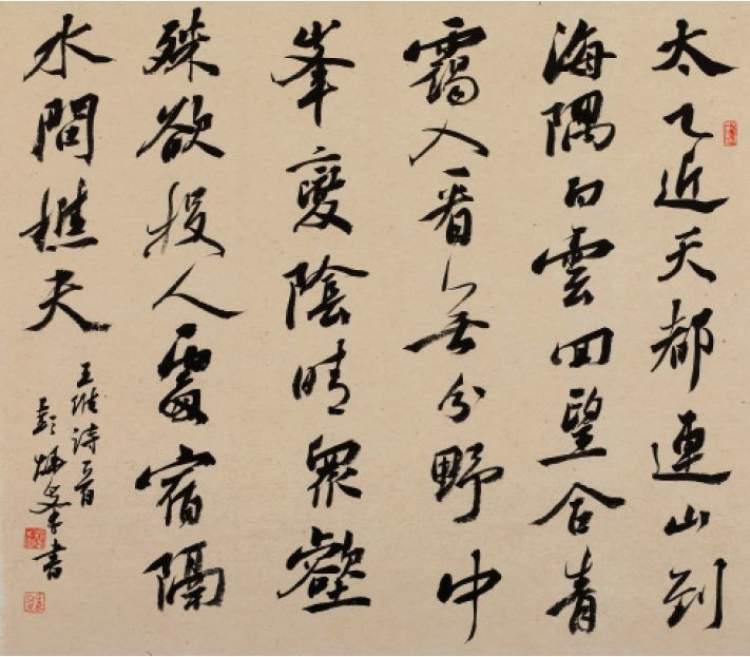 太乙近天都連山到
海隅白雲回望合青
靄入看無分野中
峯變陰晴衆壑
殊欲投人處宿隔
水問樵夫
王維詩一首
彭炳書